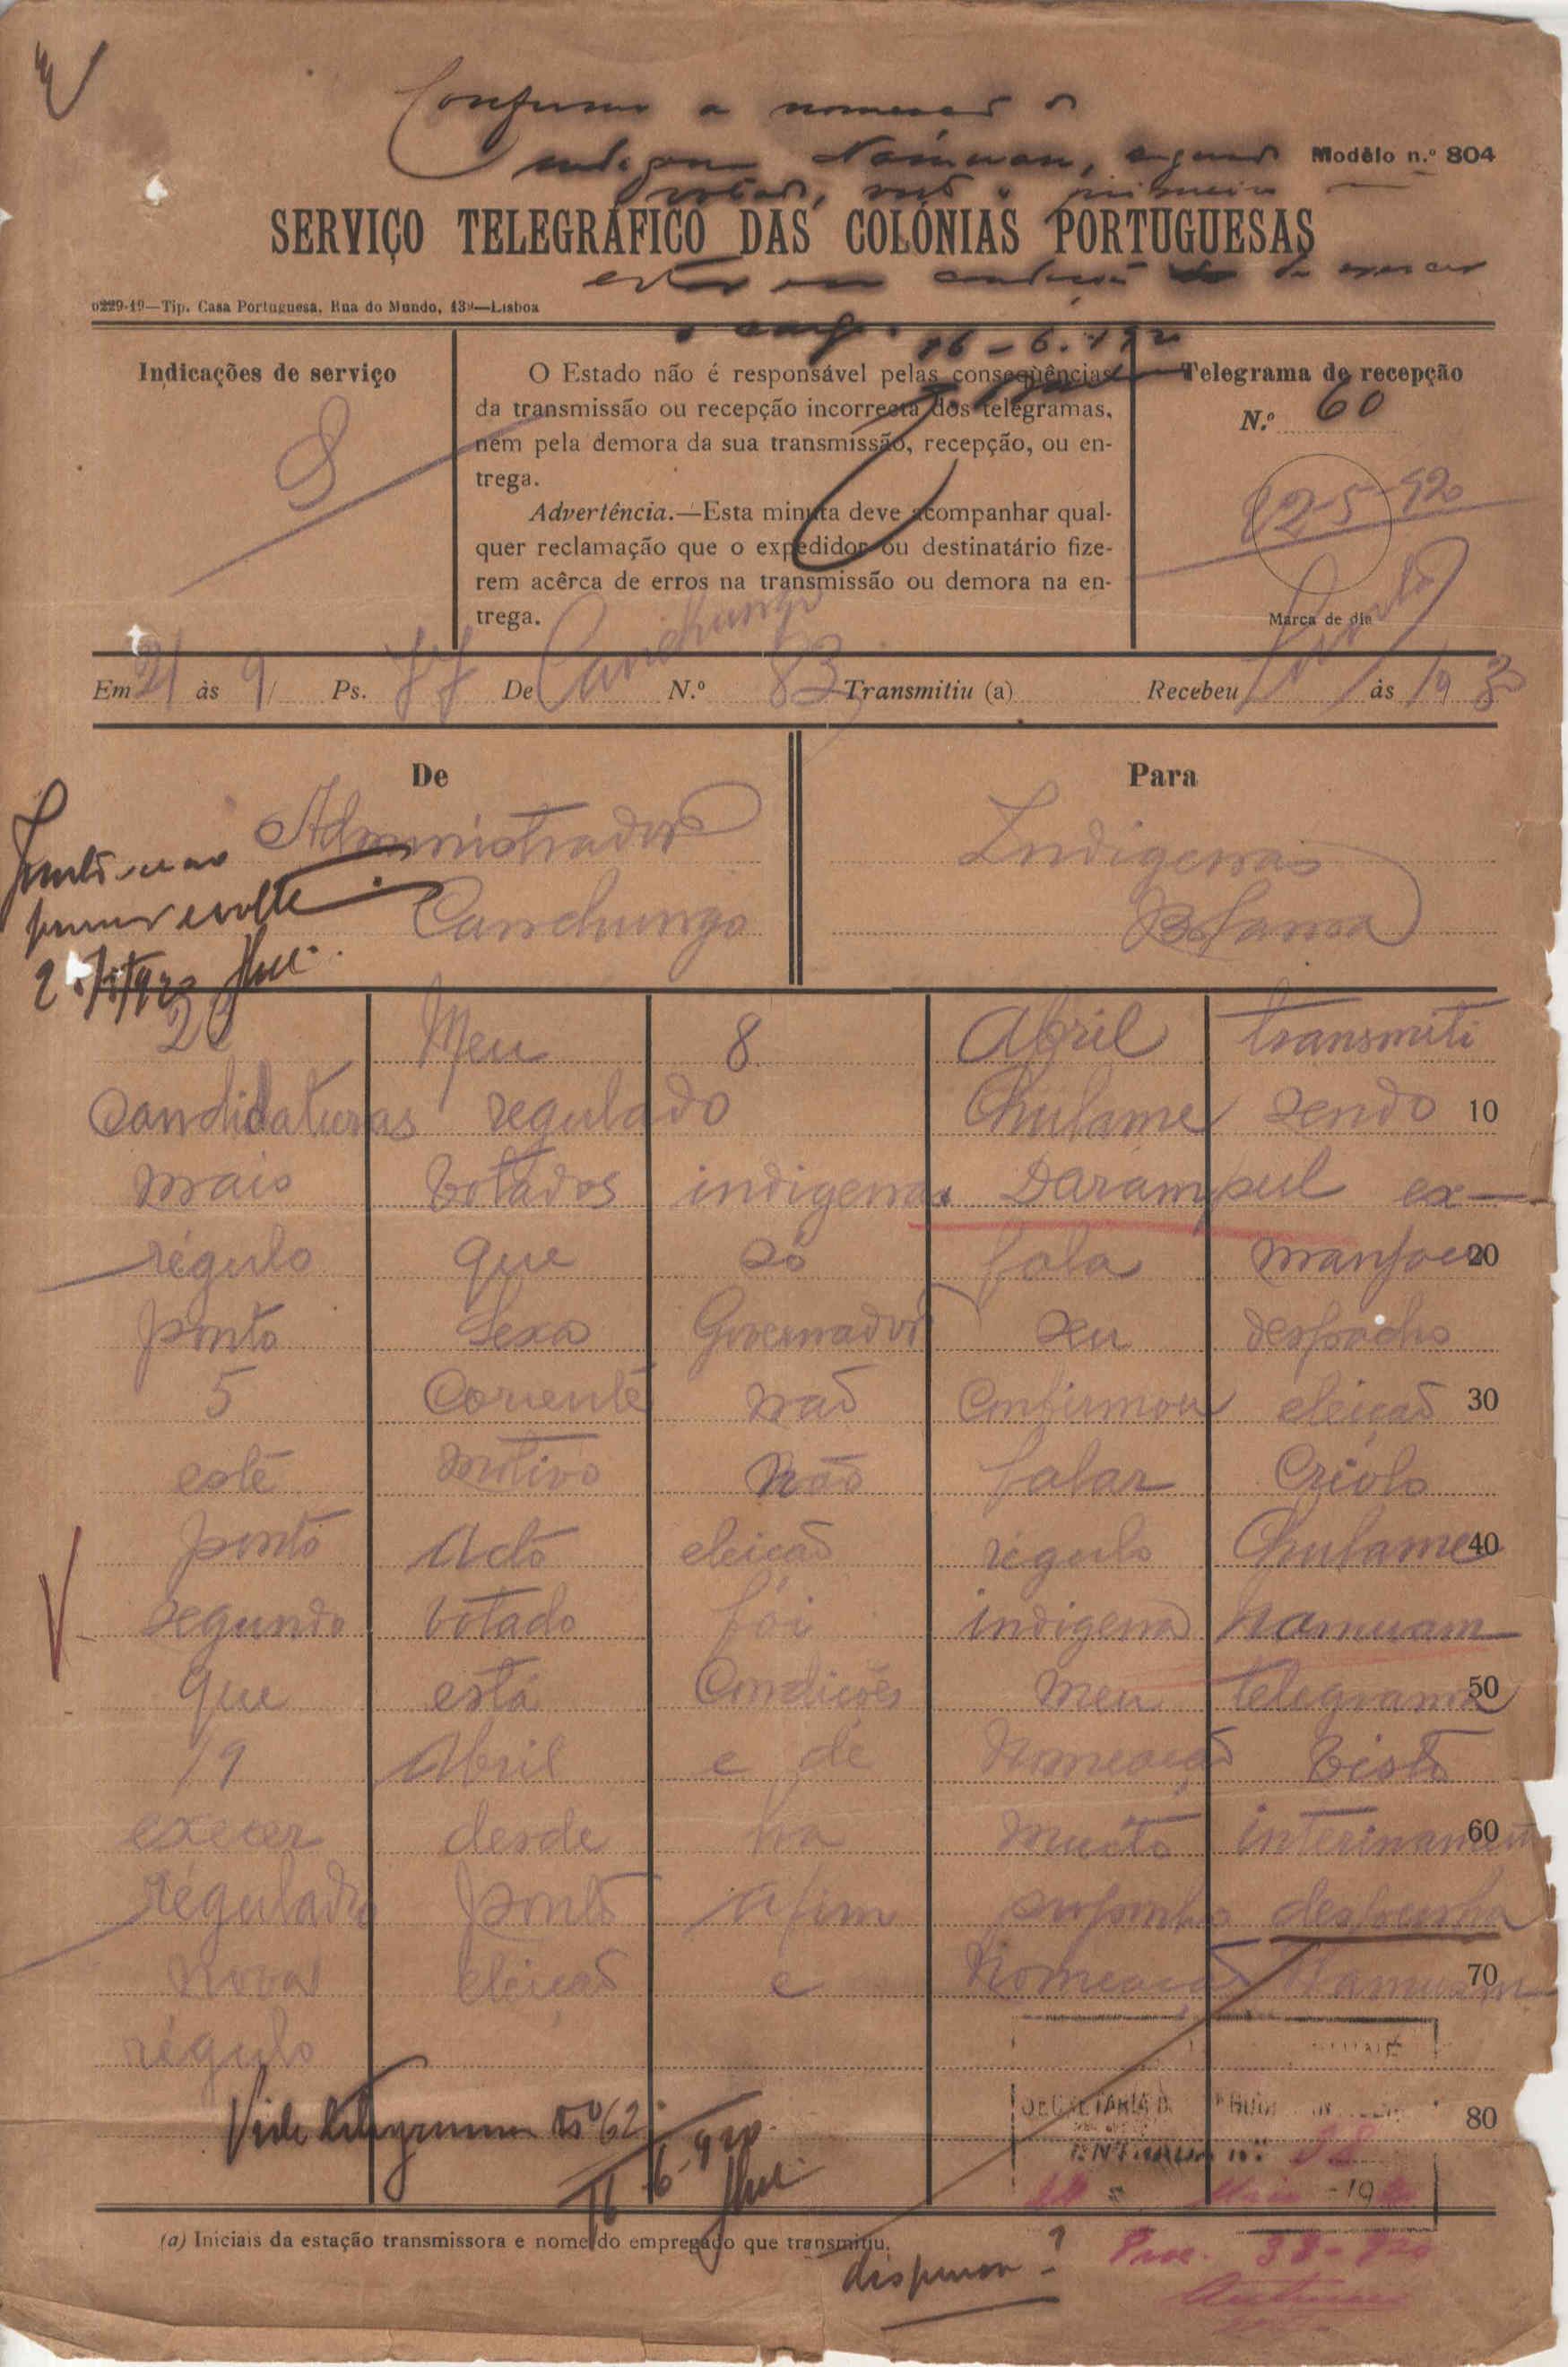 Confirmo a nomeação do
indigena Namuam, segundo
votado, visto o primeiro
Modêlo n.º 804
SERVIÇO TELEGRÁFICO DAS COLÓNIAS PORTUGUESAS
estar em condições de exercer
o cargo. 16-6-920
0229-19—Tip. Casa Portuguesa, Rua do Mundo, 139—Lisboa
Indicações de serviço
S
O Estado não é responsável pelas conseqüências
da transmissão ou recepção incorrecta dos telegramas,
nem pela demora da sua transmissão, recepção, ou en-
trega.
Advertência.—Esta minuta deve acompanhar qual-
quer reclamação que o expedidor ou destinatário fize-
rem acêrca de erros na transmissão ou demora na en-
trega.
Telegrama de recepção
N.º 60
22-5-920
Marca de dia
Em 21 às 9/ Ps. 77 De Canchungo N.º 83 Transmitiu (a) Recebeu às 19
De
Administrador
Canchungo
Para
Indigenas
Bolama
Junte-se ao
processo e volte
Meu 8 Abril transmiti
candidaturas regulado Chulame sendo 10
mais votados indigenas Darampul ex-
régulo que só fala manjaco 20
ponto Sexa Governador seu despacho
5 corrente não confirmou eleição 30
este motivo não falar criolo
ponto Acto eleição régulo Chulame 40
segundo votado foi indigena Namuam
que está condições meu telegrama 50
19 Abril e de nomeação visto
execer desde ha muito interinamente 60
regulado ponto Afim proponho despensa
nova eleição e nomeação Namuam 70
régulo
Vide telegrama nº 62
16-6-920
80
SECRETARIA
ENTRADA N.º
Maio -1920
(a) Iniciais da estação transmissora e nome do empregado que transmitiu.
Proc. 38-920